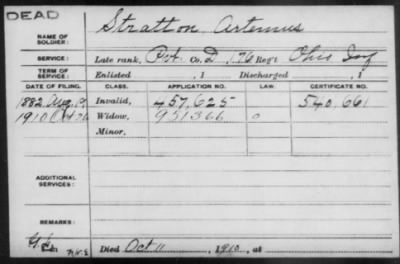 DEAD
NAME OF SOLDIER: Stratton Artemus
SERVICE: Late rank, Pvt Co. D, 176 Reg't Ohio Inf
TERM OF SERVICE: Enlisted , 1 Discharged , 1
DATE OF FILING. CLASS. APPLICATION NO. LAW. CERTIFICATE NO.
1882 Aug 19 Invalid, 457,625 540,661
1910 Oct 26 Widow, 951366 0
Minor,
ADDITIONAL SERVICES:
REMARKS:
Died Oct 11, 1910, at